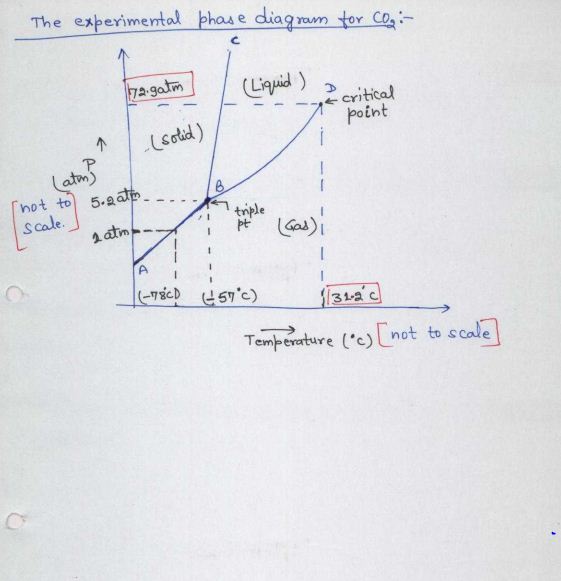 The experimental phase diagram for CO2:-
C
72.9atm
(Liquid)
D
critical
point
(solid)
P
(atm)
B
5.2atm
[not to
scale.]
triple
pt
1atm
(Gas)
A
(-78°C)
(-57°C)
31.2°C
Temperature (°C) [not to scale]